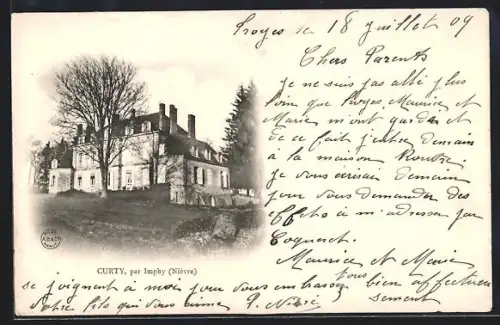 Troyes le 18 Juillet 09
Chers Parents
Je ne suis pas allé plus
loin que Troyes Maurice et
Marie m'ont gardé et
de ce fait j'entre demain
à la maison
Je vous écrirai demain
pour vous demander des
Effets à m'adresser par
Maurice et Marie
se joignent à moi pour vous embrasser tous bien affectueu
sement
Votre fils qui vous aime P.
CURTY, par Imphy (Nièvre)